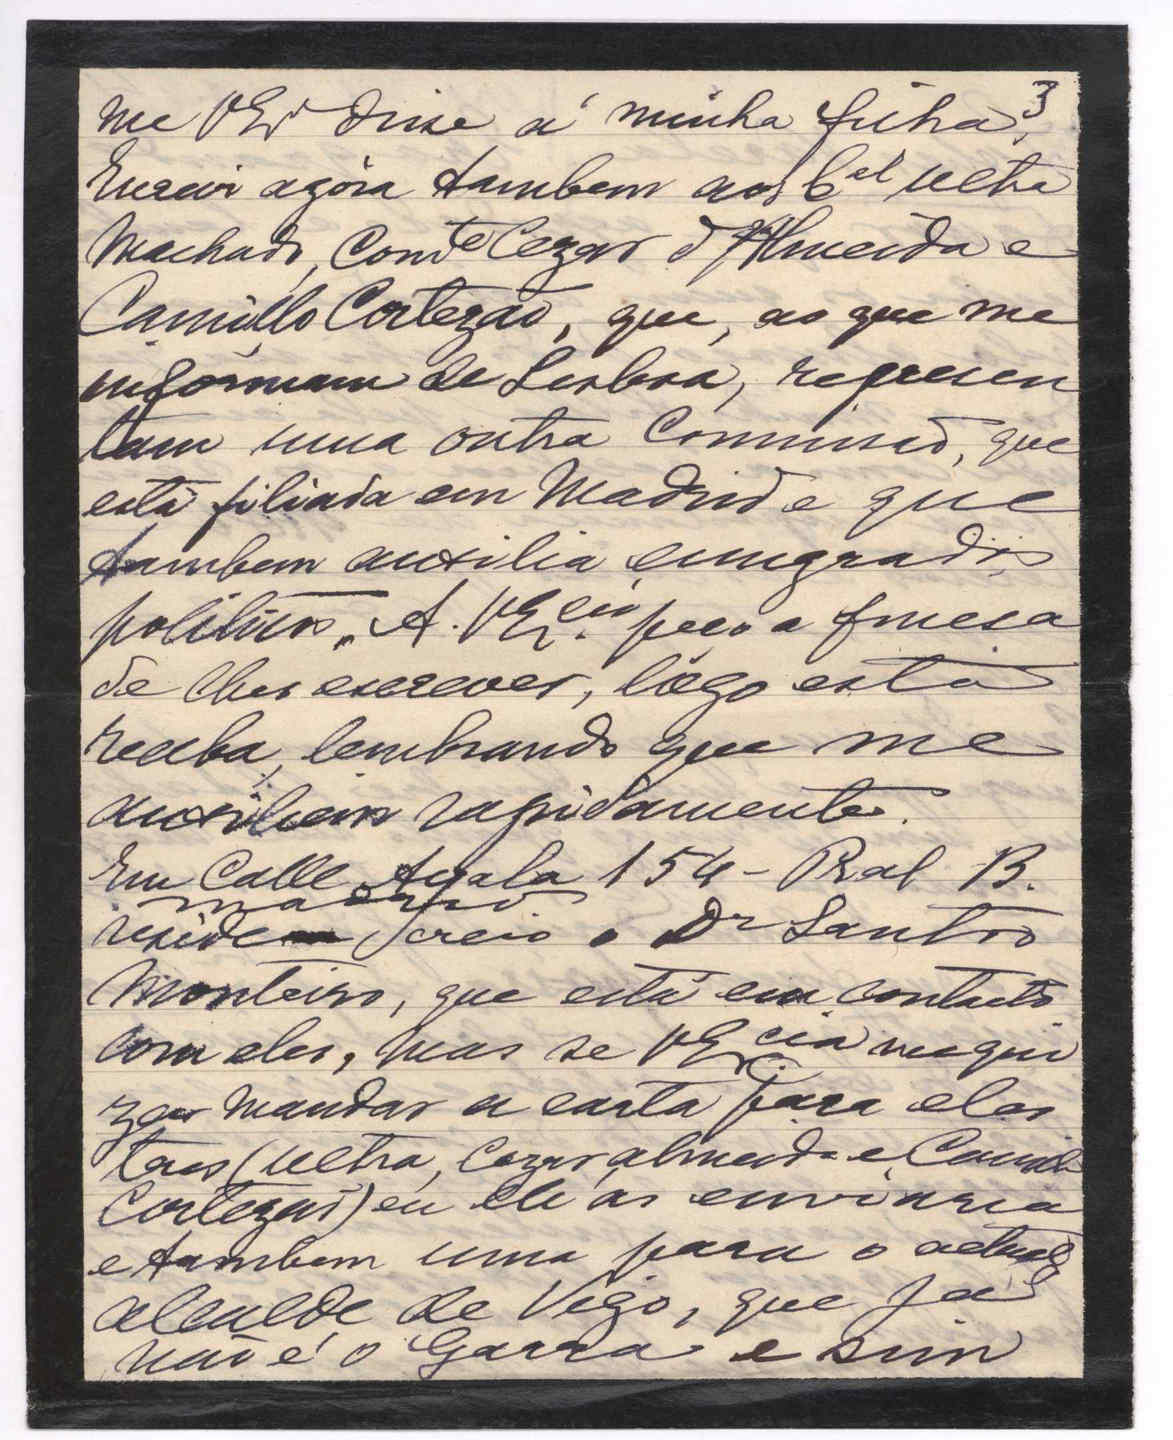 3
me VExª disse á minha filha.
Escrevi agóra tambem aos Cel Uctra
Machado, Comte Cezar d'Almeida e
Camillo Cortezão, que, ao que me
informam de Lisboa, represen
tam uma outra Commissão, que
está filiada em Madrid e que
tambem auxilia emigrados
politicos. A. VExcia peço a fineza
de lhes escrever, lógo esta
receba, lembrando que me
auxiliem rapidamente.
Em Calle Ayala 154 - Pral B.
Madrid
reside creio o Dr Santos
Monteiro, que está em contacto
com eles, mas se VExcia me qui
zer mandar a carta para eles
tres (Uctra, Cezar Almeida e Camillo
Cortezão) eu lh'as enviaria
e tambem uma para o actual
alcalde de Vigo, que já
não é o Garra e sim